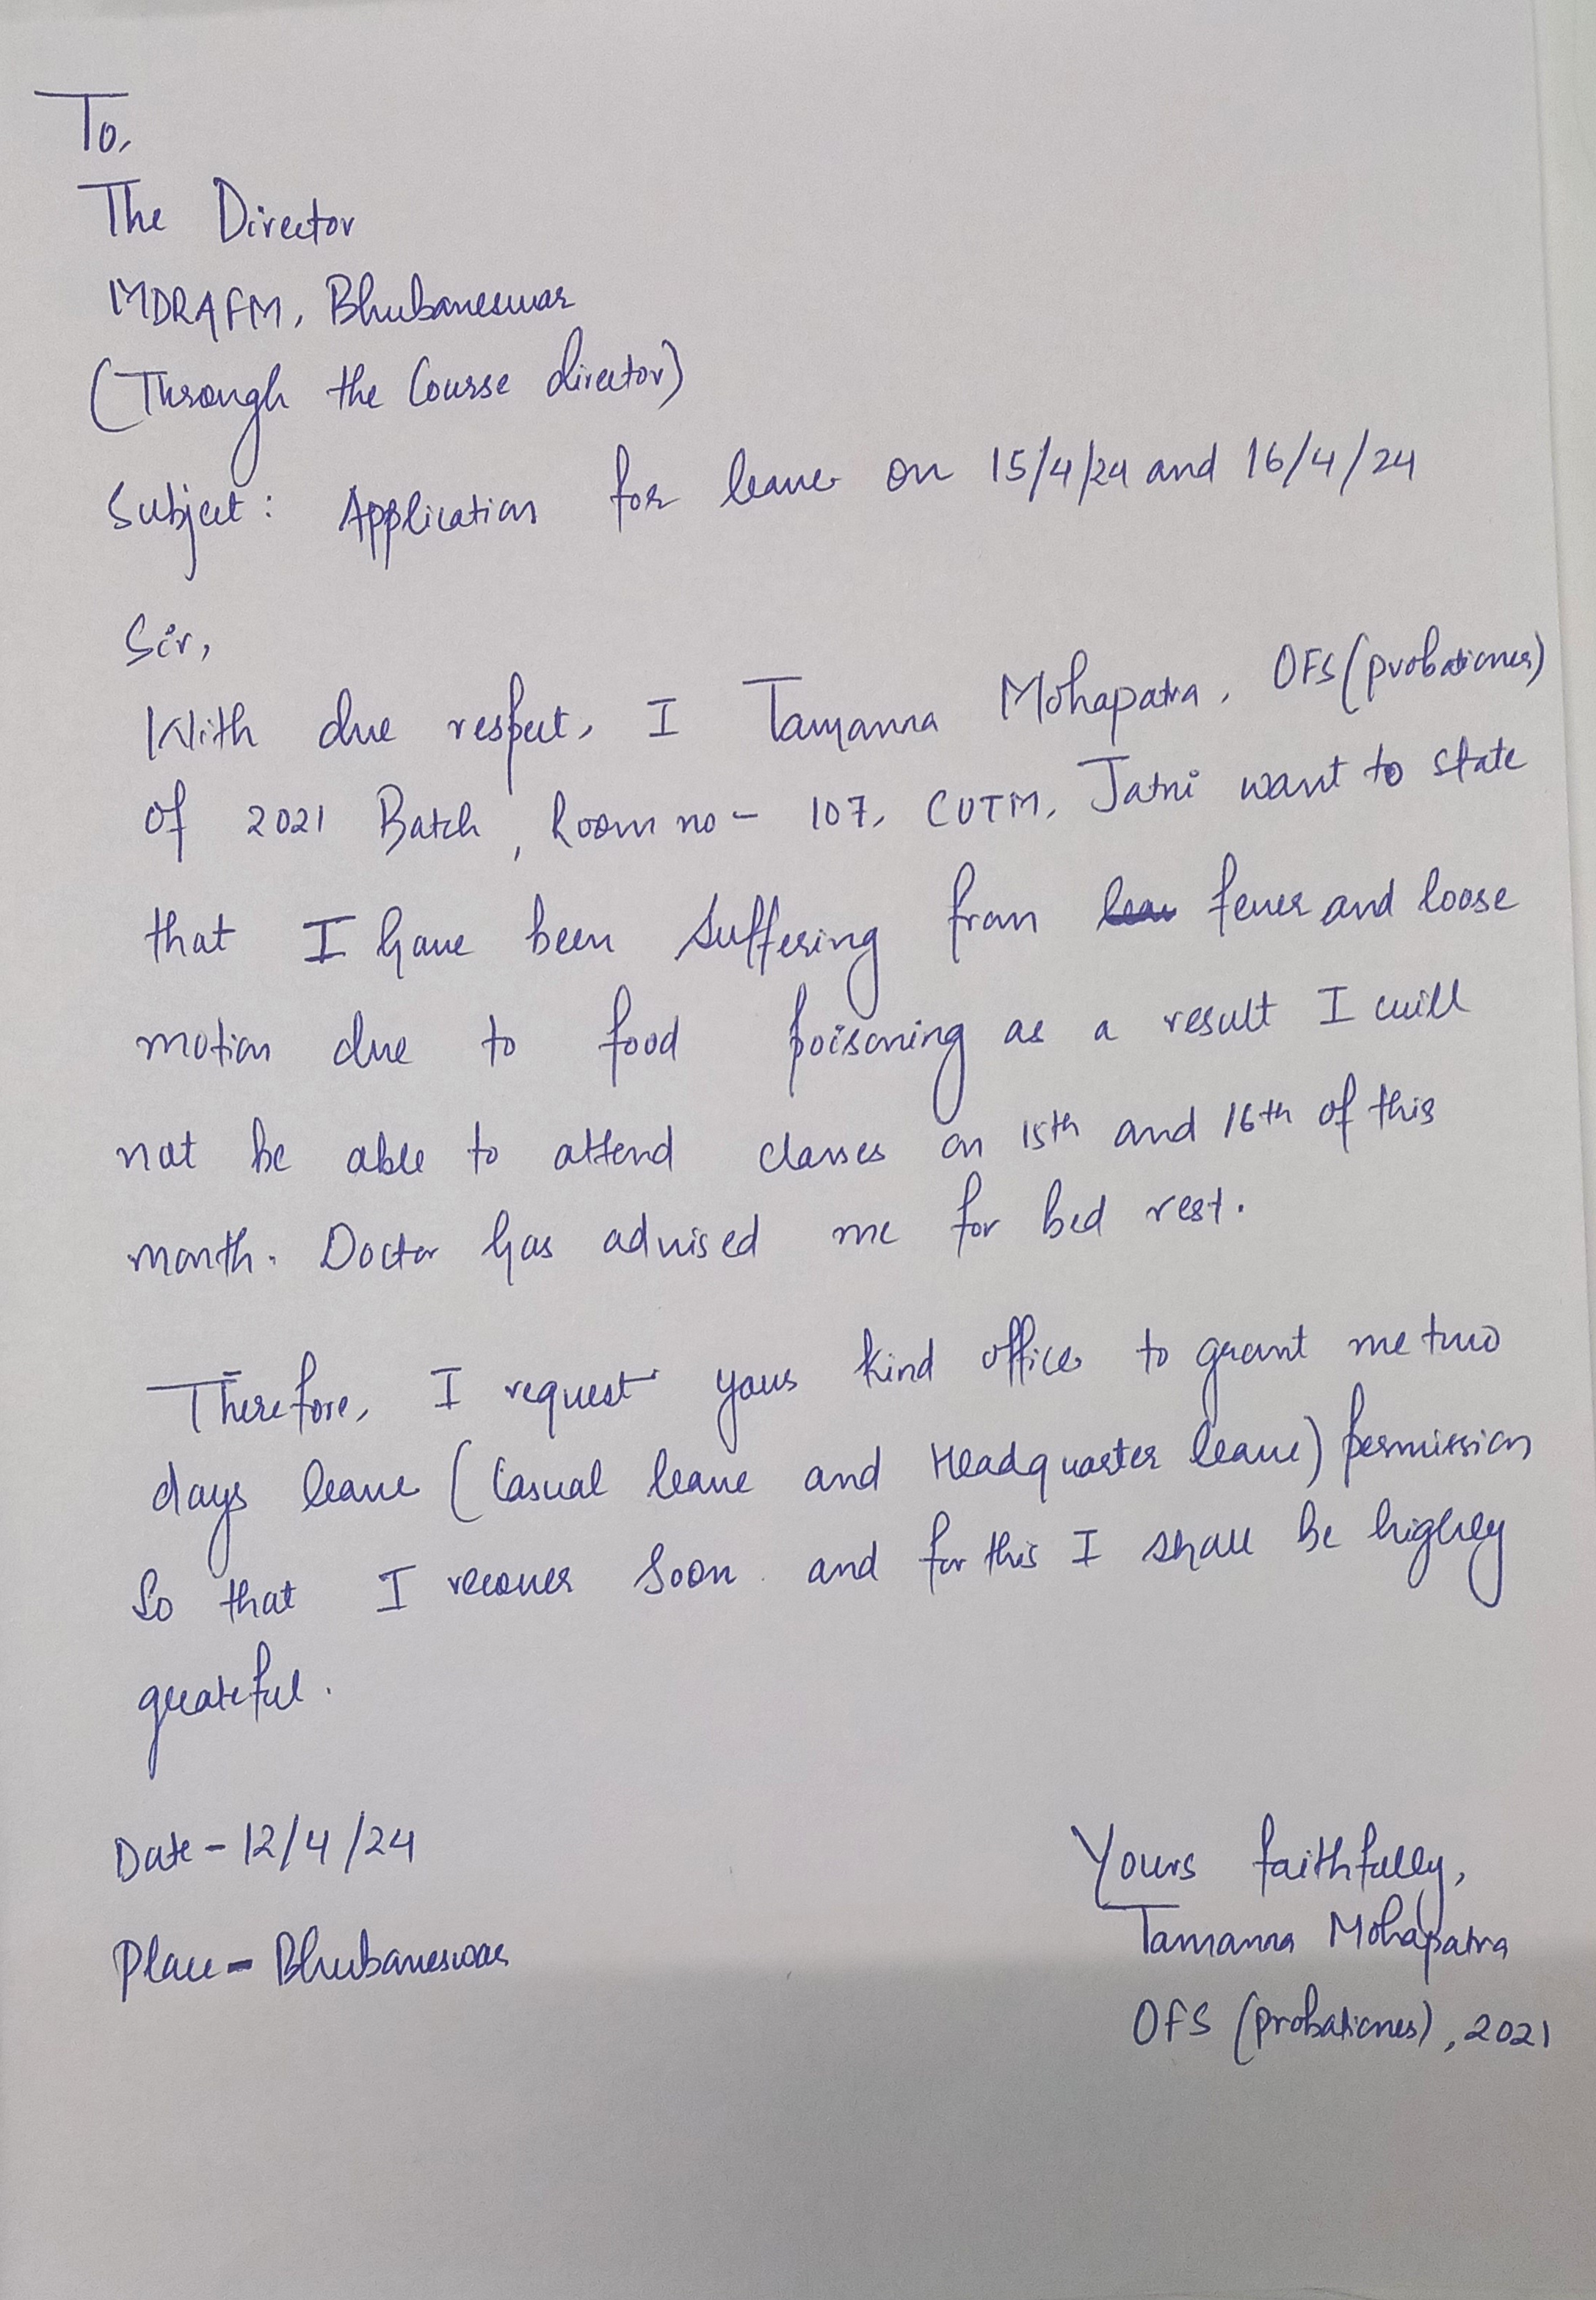 To,
The Director
MDRAFM, Bhubaneswar
(Through the Course director)
Subject: Application for leave on 15/4/24 and 16/4/24
Sir,
With due respect, I Tamanna Mohapatra, OFS (probationer)
of 2021 Batch, Room no - 107, CUTM, Jatni want to state
that I have been suffering from fever and loose
motion due to food poisoning as a result I will
not be able to attend classes on 15th and 16th of this
month. Doctor has advised me for bed rest.
Therefore, I request your kind office to grant me two
days leave (Casual leave and Headquarter leave) permission
So that I recover soon and for this I shall be highly
grateful.
Date - 12/4/24
Place - Bhubaneswar
Yours faithfully,
Tamanna Mohapatra
OFS (probationer), 2021